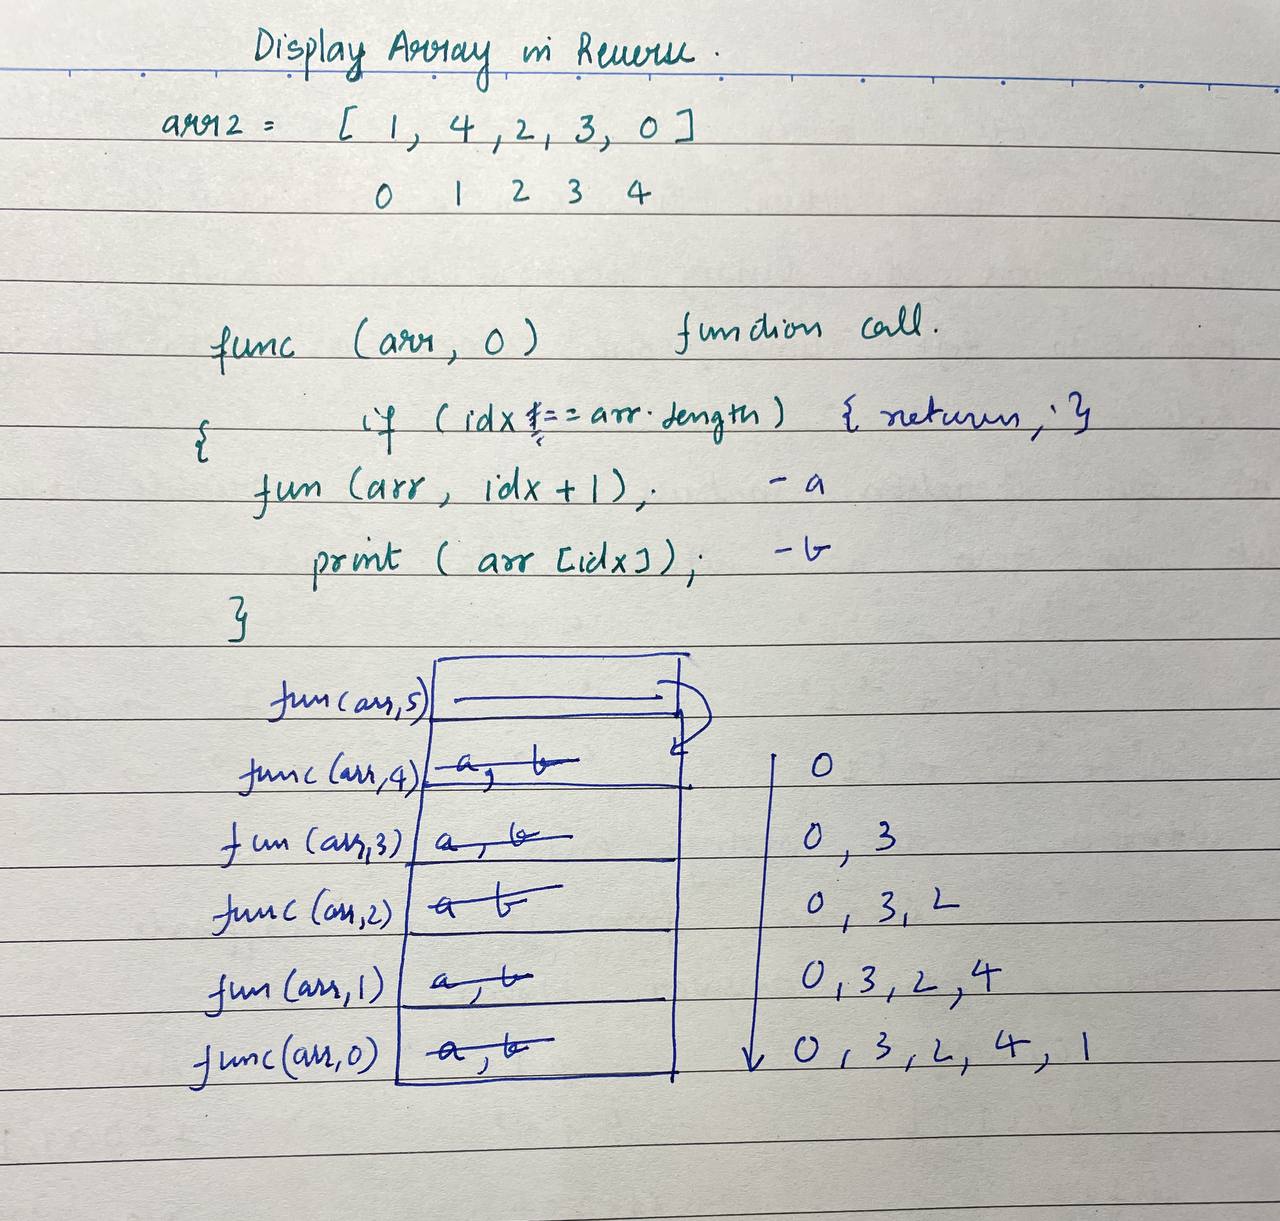 Display Array in Reverse.
arr2 = [ 1, 4, 2, 3, 0 ]
0 1 2 3 4
func (arr, 0) function call.
{ if ( idx == arr.length) { return ; }
fun (arr, idx + 1); - a
print ( arr [idx] ); - b
}
fun(arr,5)
func (arr,4) a, b 0
fun (arr,3) a, b 0, 3
func (arr,2) a b 0, 3, 2
fun (arr,1) a, b 0, 3, 2, 4
func(arr,0) a, b 0, 3, 2, 4, 1